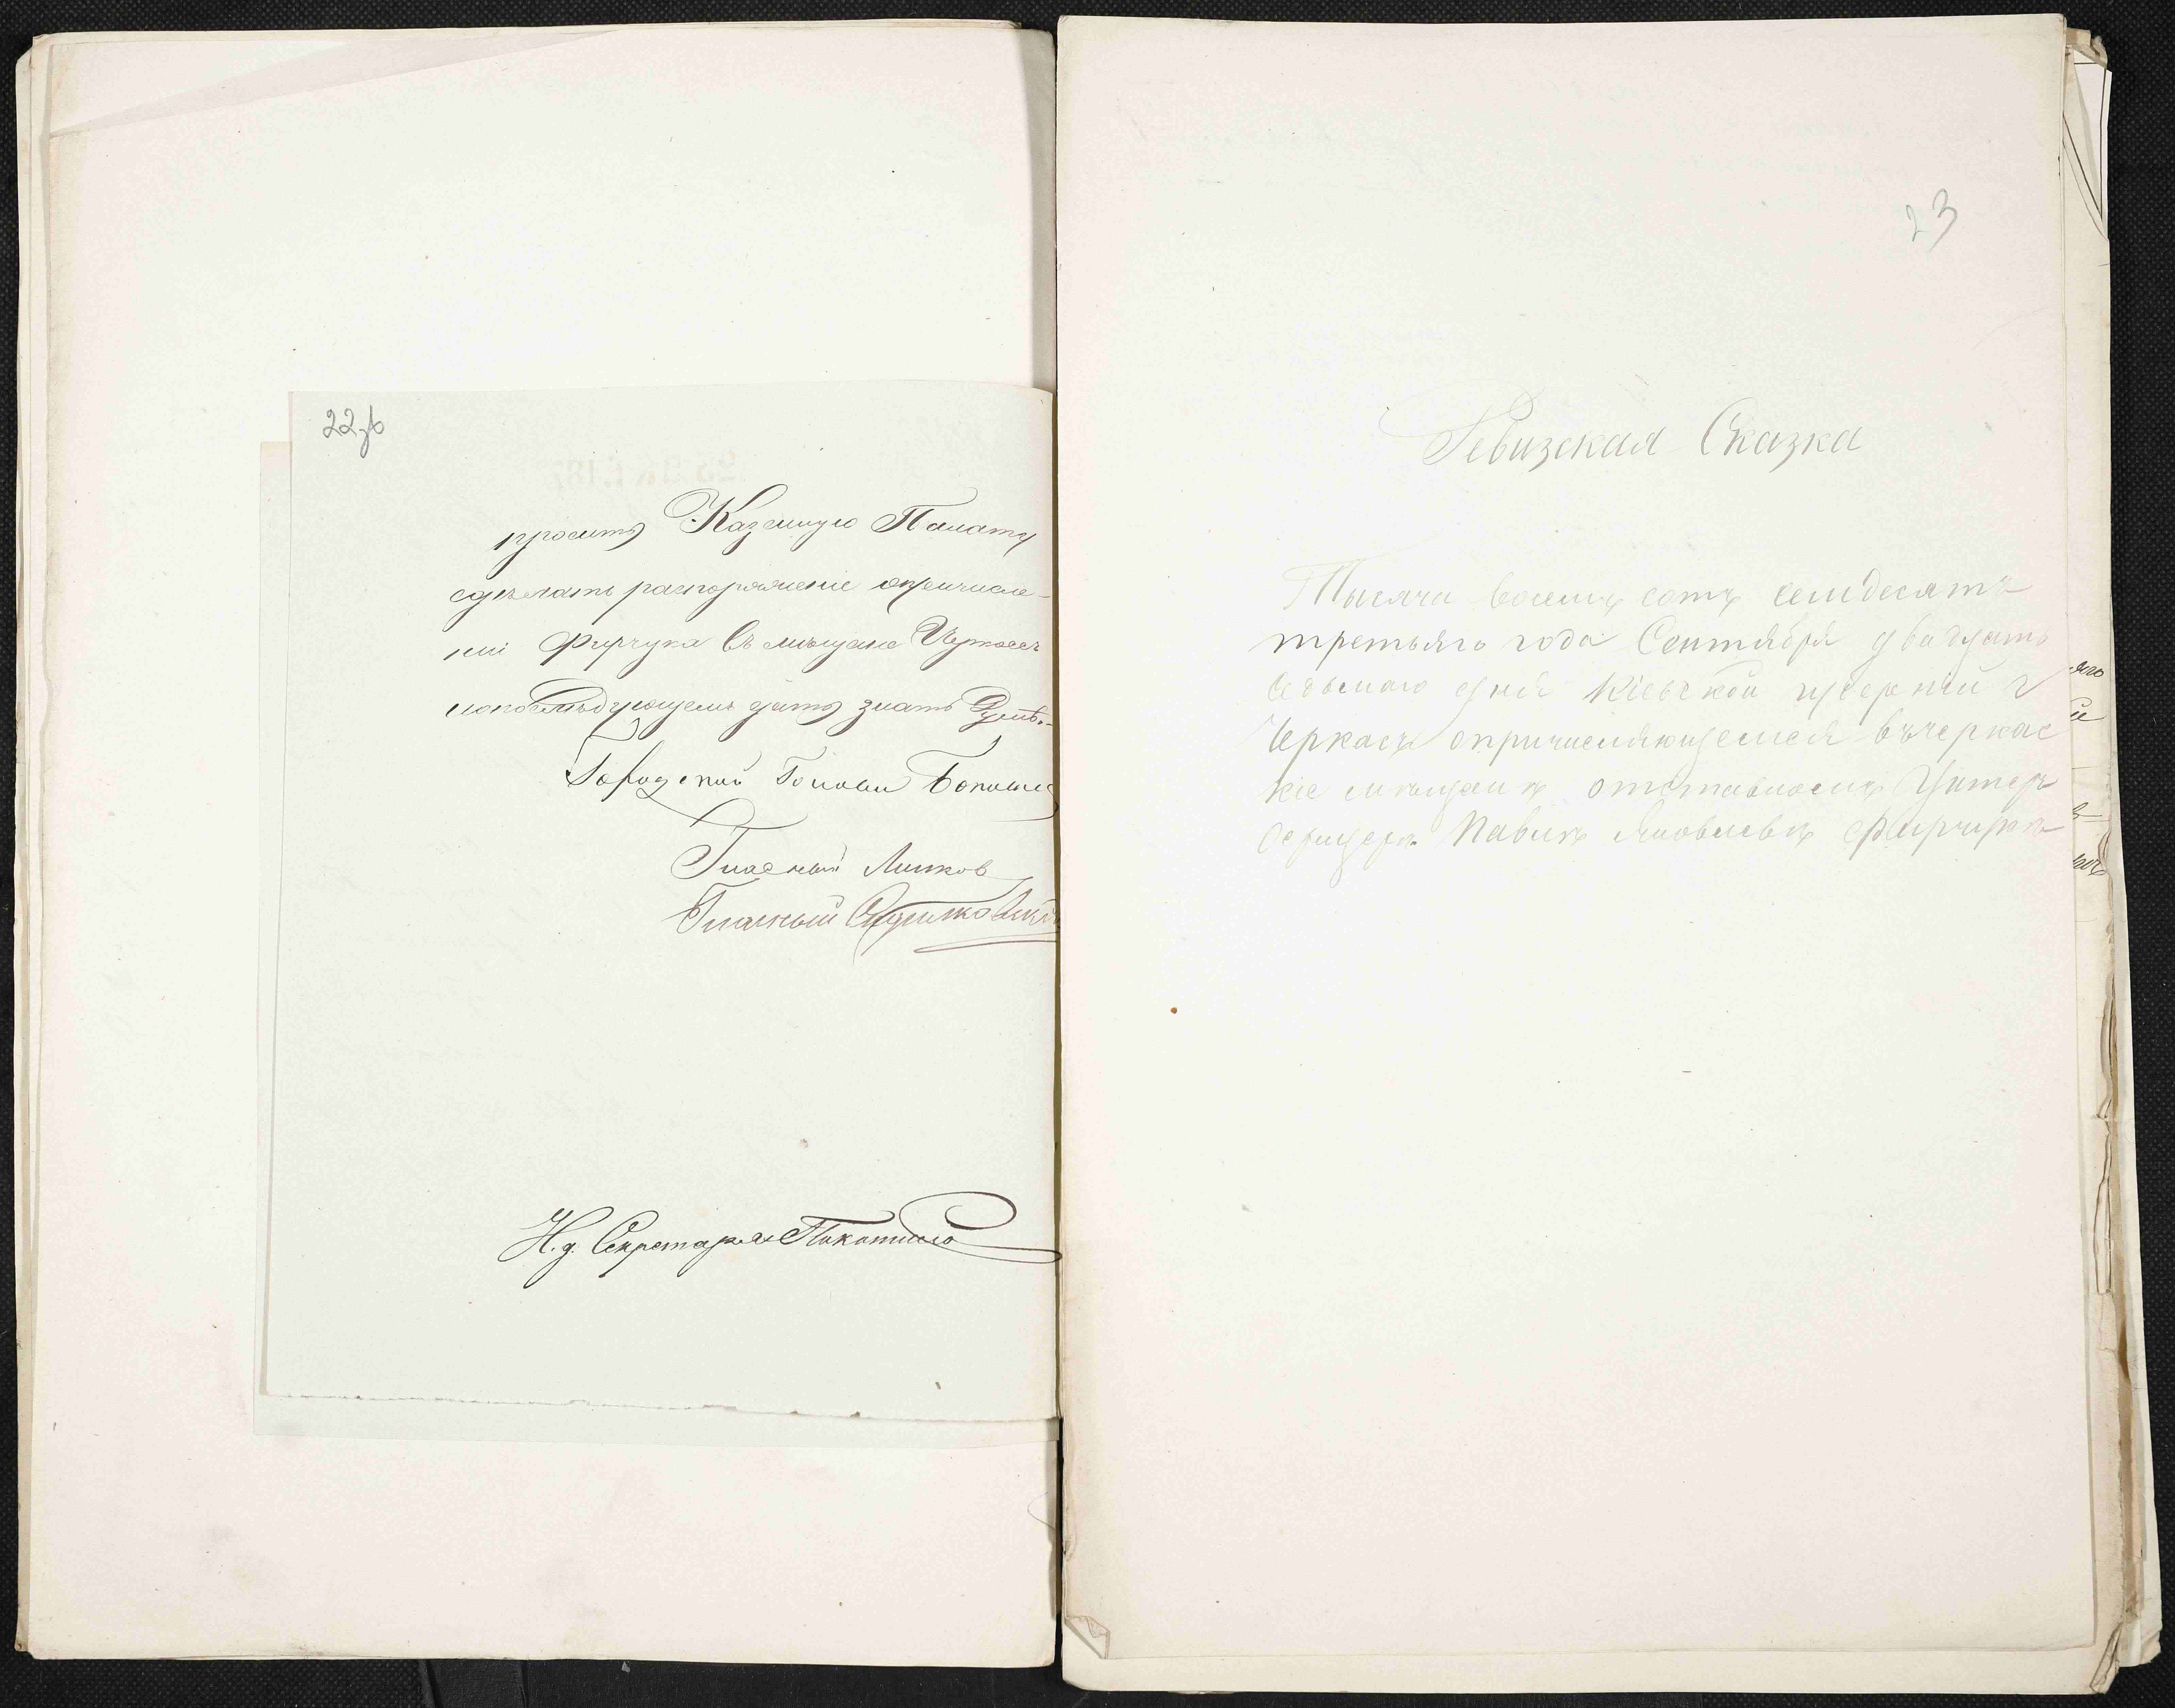 22зв
проситъ Казенную Палату
сдѣлать распоряженіе опричисле-
ніи Фирчука въ мѣщане Черкассъ
ипопослѣдующемъ дать знать Думѣ.-
Городской Голова
Гласный Лисков
Гласный
И. д. Секретаря
23
Ревизская Сказка
Тысяча восемь сотъ семдесятъ
третьяго года Сентября двадцать
седьмаго дня Кіевской губерніи г
Черкасъ опричисляющемся въчеркас
кіе мѣщани отставномъ Унтеръ
Офицера Павилъ Яковлевъ Фирчукъ